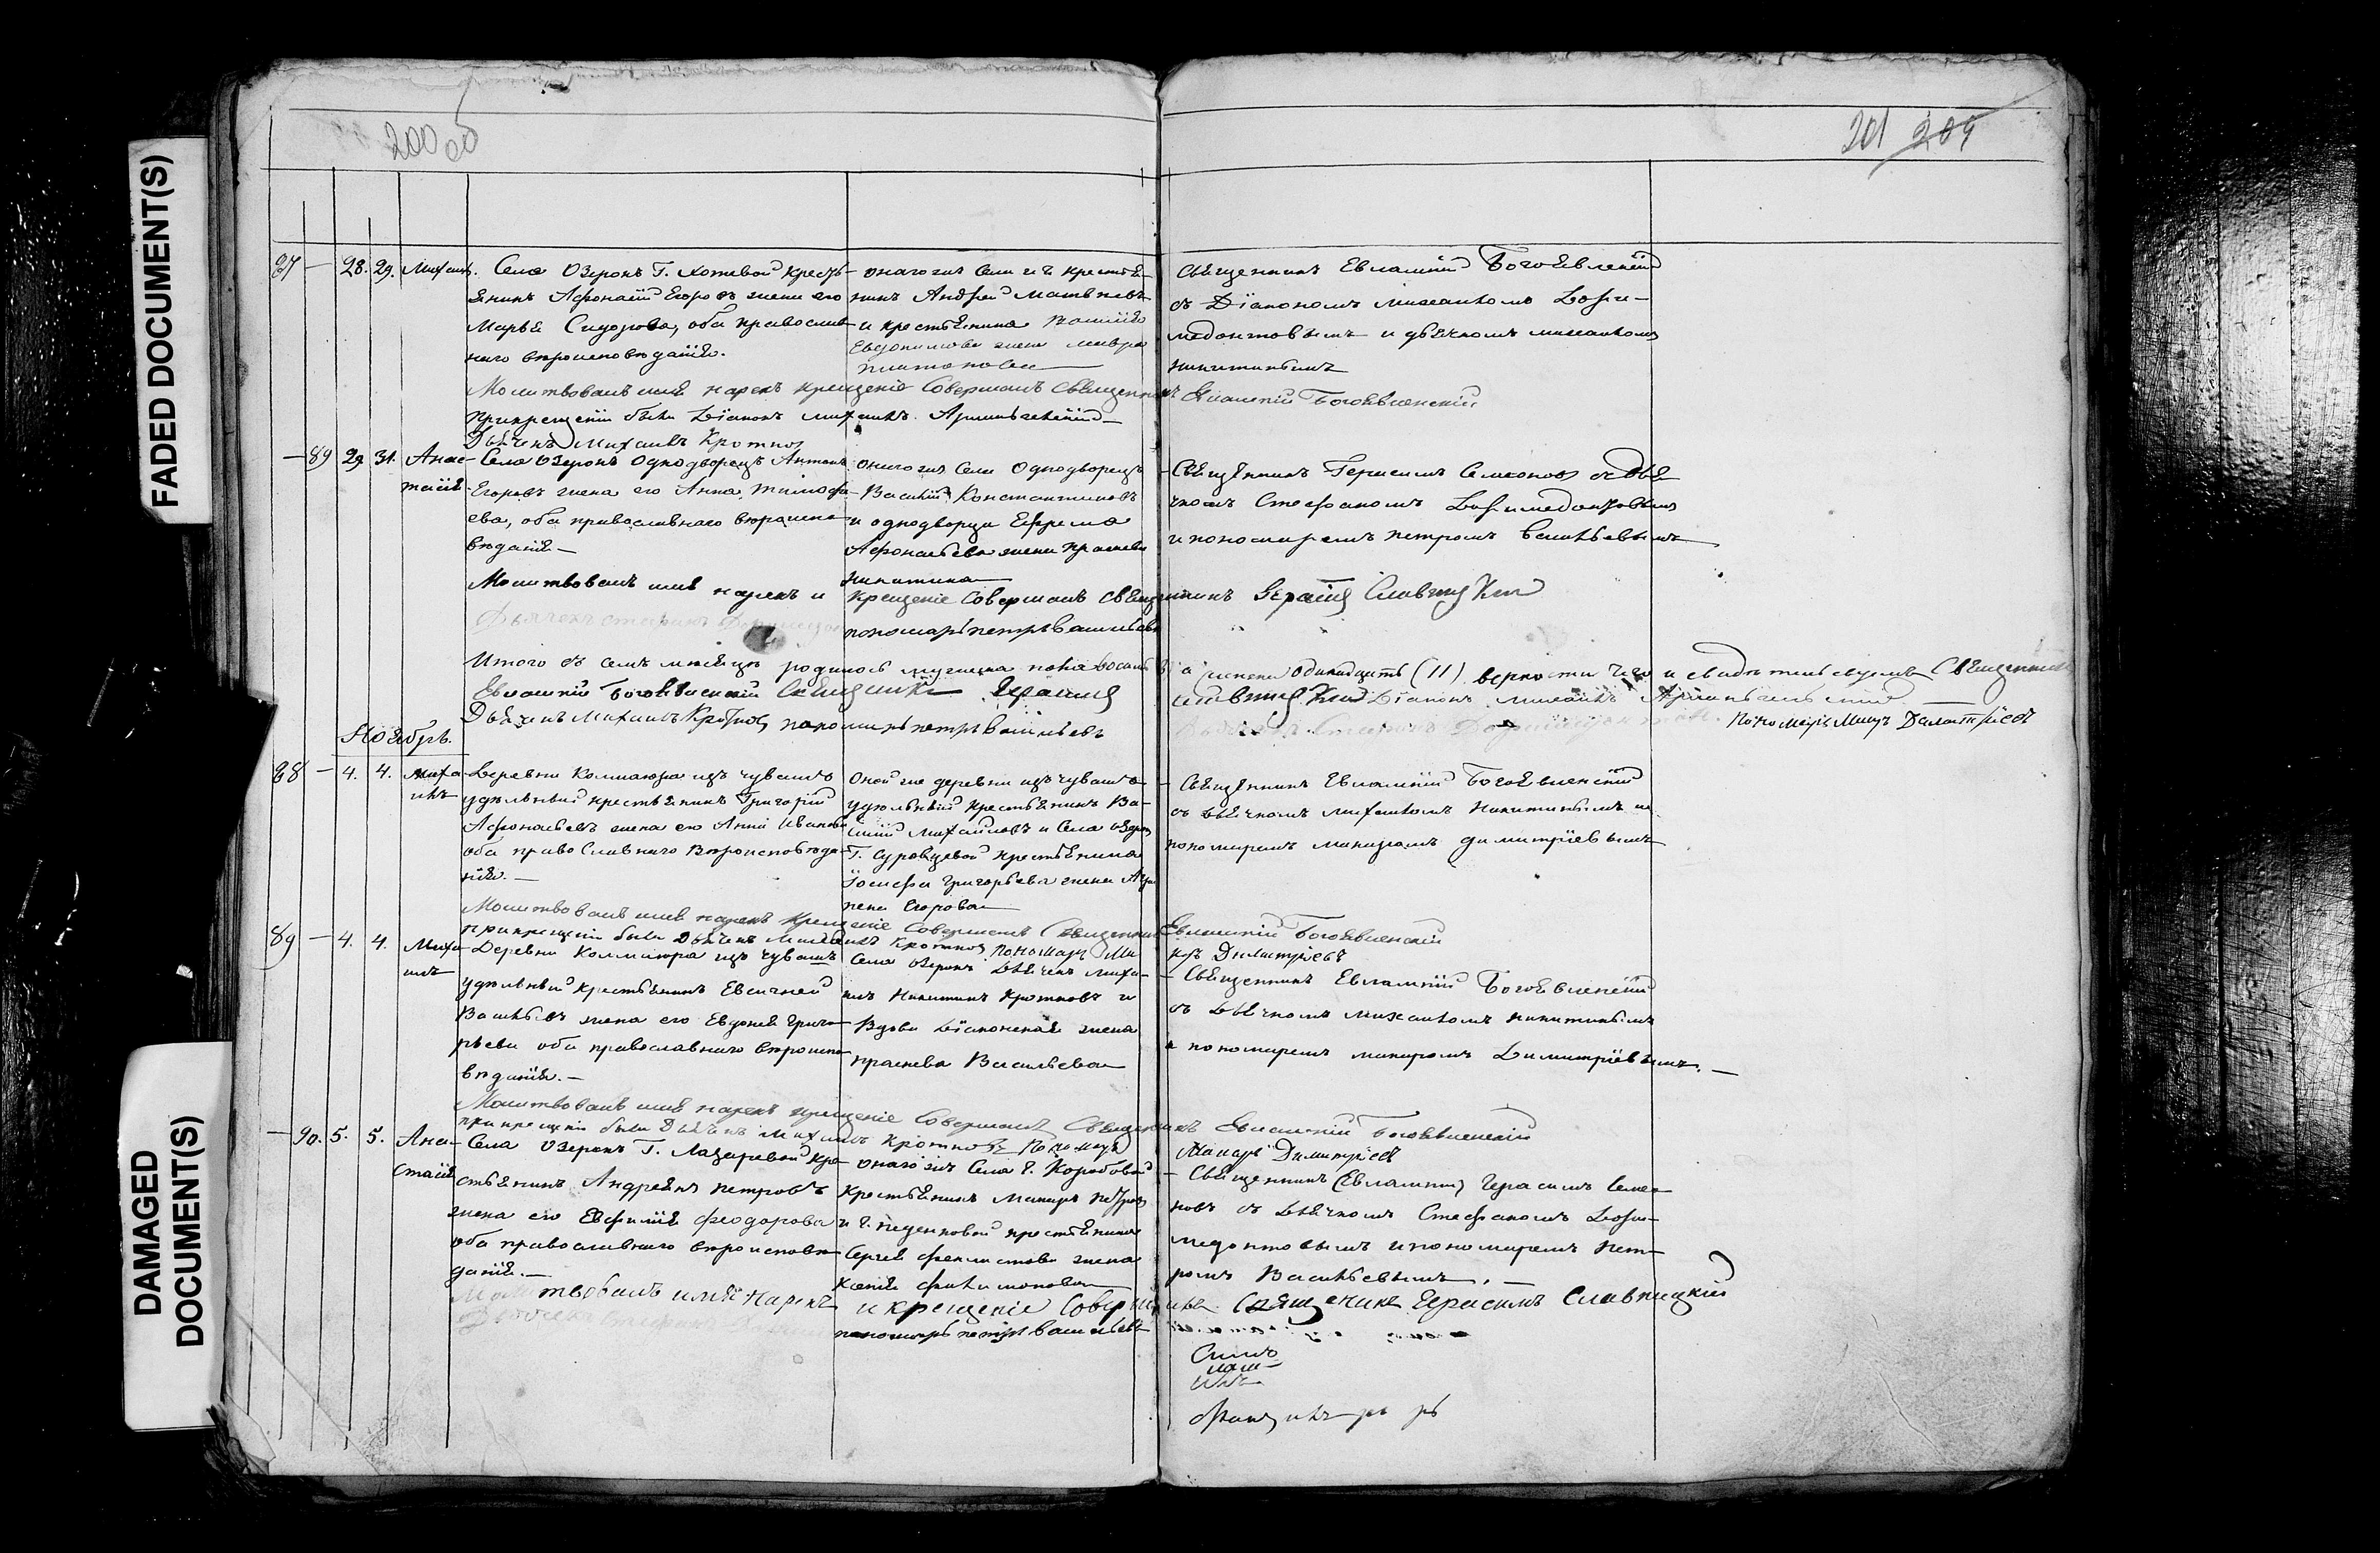 FADED DOCUMENT(S)
DAMAGED
DOCUMENT(S)
200
201 204
87 — 28. 29. Михаилъ.
Села Озерокъ Г. Хотевой кресть-
янинъ Афонасій Егоровъ жена его
Марья Сидорова, оба православ-
наго вѣроисповѣданія.
онагожъ Села и Г. крестья-
нинъ Андрей Матвѣевъ
и крестьянина
Евдокимова жена Мавра
Платонова
Священникъ Евлампій Богоявленскій
съ Діакономъ Михаиломъ
и дьячкомъ Михаиломъ
Никитинымъ
Молитвовалъ имя нарекъ крещеніе Совершалъ Священникъ Евлампій Богоявленскій
При крещеніи были Діаконъ Михаилъ
Дьячекъ Михаилъ Кротковъ
— 89 29. 31. Анас-
тасія
Села Озерокъ Однодворецъ Антонъ
Егоровъ жена его Анна Тимофе-
ева, оба православнаго вѣроиспо-
вѣданія —
онагожъ Села Однодворецъ
Василій Константиновъ
и однодворца Ефрема
Афонасьева жена Прасковья
Никитина
Священникъ Герасимъ Семеновъ съ Дья-
чкомъ Стефаномъ
и пономаремъ Петромъ Васильевымъ
Молитвовалъ имя нарекъ и крещеніе Совершалъ Священникъ Герасимъ Славницкій
пономарь Петръ Васильевъ
Итого въ семъ мѣсяцѣ родилось мужеска пола восемь а женска одинадцать (11) верности чего и свидѣтельствуемъ Священникъ
Евлампій Богоявленскій Священникъ Герасимъ Славницкій Діаконъ Михаилъ
Дьячекъ Михаилъ Кротковъ пономарь Петръ Васильевъ
пономарь Макаръ Димитріевъ
Ноябрь.
88 — 4. 4. Миха-
илъ
Деревни Колмаюра изъ чувашъ
удѣльный крестьянинъ Григорій
Афонасьевъ жена его Анна Иванова
оба православнаго вѣроисповѣда-
нія. —
Оной же деревни изъ чувашъ
удѣльный крестьянинъ Ва-
силій Михайловъ и Села Озерокъ
Г. Суровцевой крестьянина
Іосифа Григорьева жена Агра-
пена Егорова
Священникъ Евлампій Богоявленскій
съ дьячкомъ Михаиломъ Никитинымъ и
пономаремъ Макаромъ Димитріевымъ
Молитвовалъ имя нарекъ крещеніе Совершалъ Священникъ Евлампій Богоявленскій
при крещеніи были Дьячекъ Михаилъ Кротковъ пономарь Ма-
каръ Димитріевъ
89 — 4. 4. Миха-
илъ
Деревни Колмаюра изъ чувашъ
удѣльный крестьянинъ Евсигней
Васильевъ жена его Евдокія Григо-
рьева оба православнаго вѣроиспо-
вѣданія. —
Села Озерокъ Дьячекъ Миха-
илъ Никитинъ Кротковъ и
Вдова Діаконская жена
Прасковья Васильева
— Священникъ Евлампій Богоявленскій
съ Дьячкомъ Михаиломъ Никитинымъ
и пономаремъ Макаромъ Димитріевымъ. —
Молитвовалъ имя нарекъ крещеніе Совершалъ Священникъ Евлампій Богоявленскій
при крещеніи были Дьячекъ Михаилъ Кротковъ Пономарь
Макаръ Димитріевъ
— 90. 5. 5. Ана-
стасія
Села Озерокъ Г. Лазаревой кре-
стьянинъ Андреянъ Петровъ
жена его Евфимія Феодорова
оба православнаго вѣроисповѣ-
данія. —
онагожъ Села Г. Коробовой
крестьянинъ Макаръ Петровъ
и Г. крестьянина
Сергея Феклистова жена
Ксенія Филимонова
— Священникъ (Евлампій) Герасимъ Семе-
новъ съ Дьячкомъ Стефаномъ
и пономаремъ Пет-
ромъ Васильевымъ. —
Молитвовалъ имя нарекъ и крещеніе Совершилъ Священикъ Герасимъ Славницкій
пономарь Петръ Васильевъ